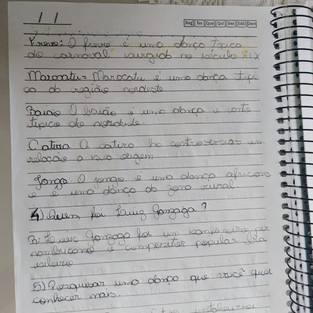 Frevo: O frevo é uma dança típica
do carnaval surgido no século XIX
Maracatu- Maracatu é uma dança típi
ca da região nordeste
Baião O baião é uma dança e canto
típico do nordeste.
Catira O catira há controvérsias em
relação a sua origem
Jongo O jongo é uma dança africana
e é uma dança da zona rural
4) Quem foi Luiz Gonzaga?
R: Luiz Gonzaga foi um compositor per
nambucano e compositor popular bra
sileiro
5) Pesquisar uma dança que você quer
conhecer mais.